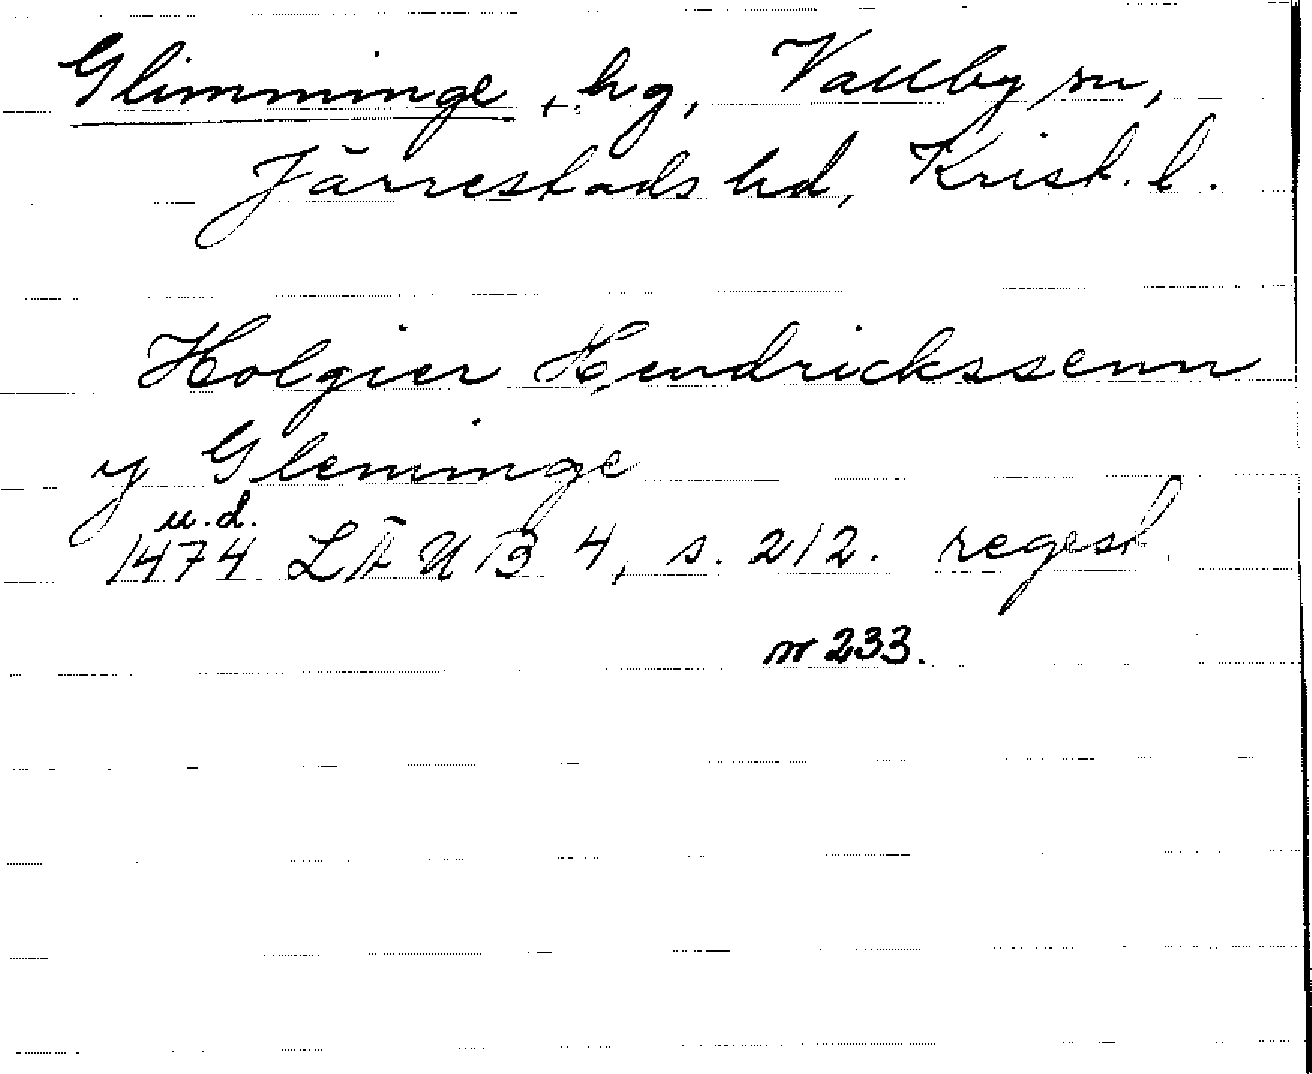 Glimminge, hg, Vallby sn,
Järrestads hd, Krist. l.
Holgier Hendrickssenn
y Gleminge
u.d.
1474 LÄUB 4, s. 212. regest.
nr 233.